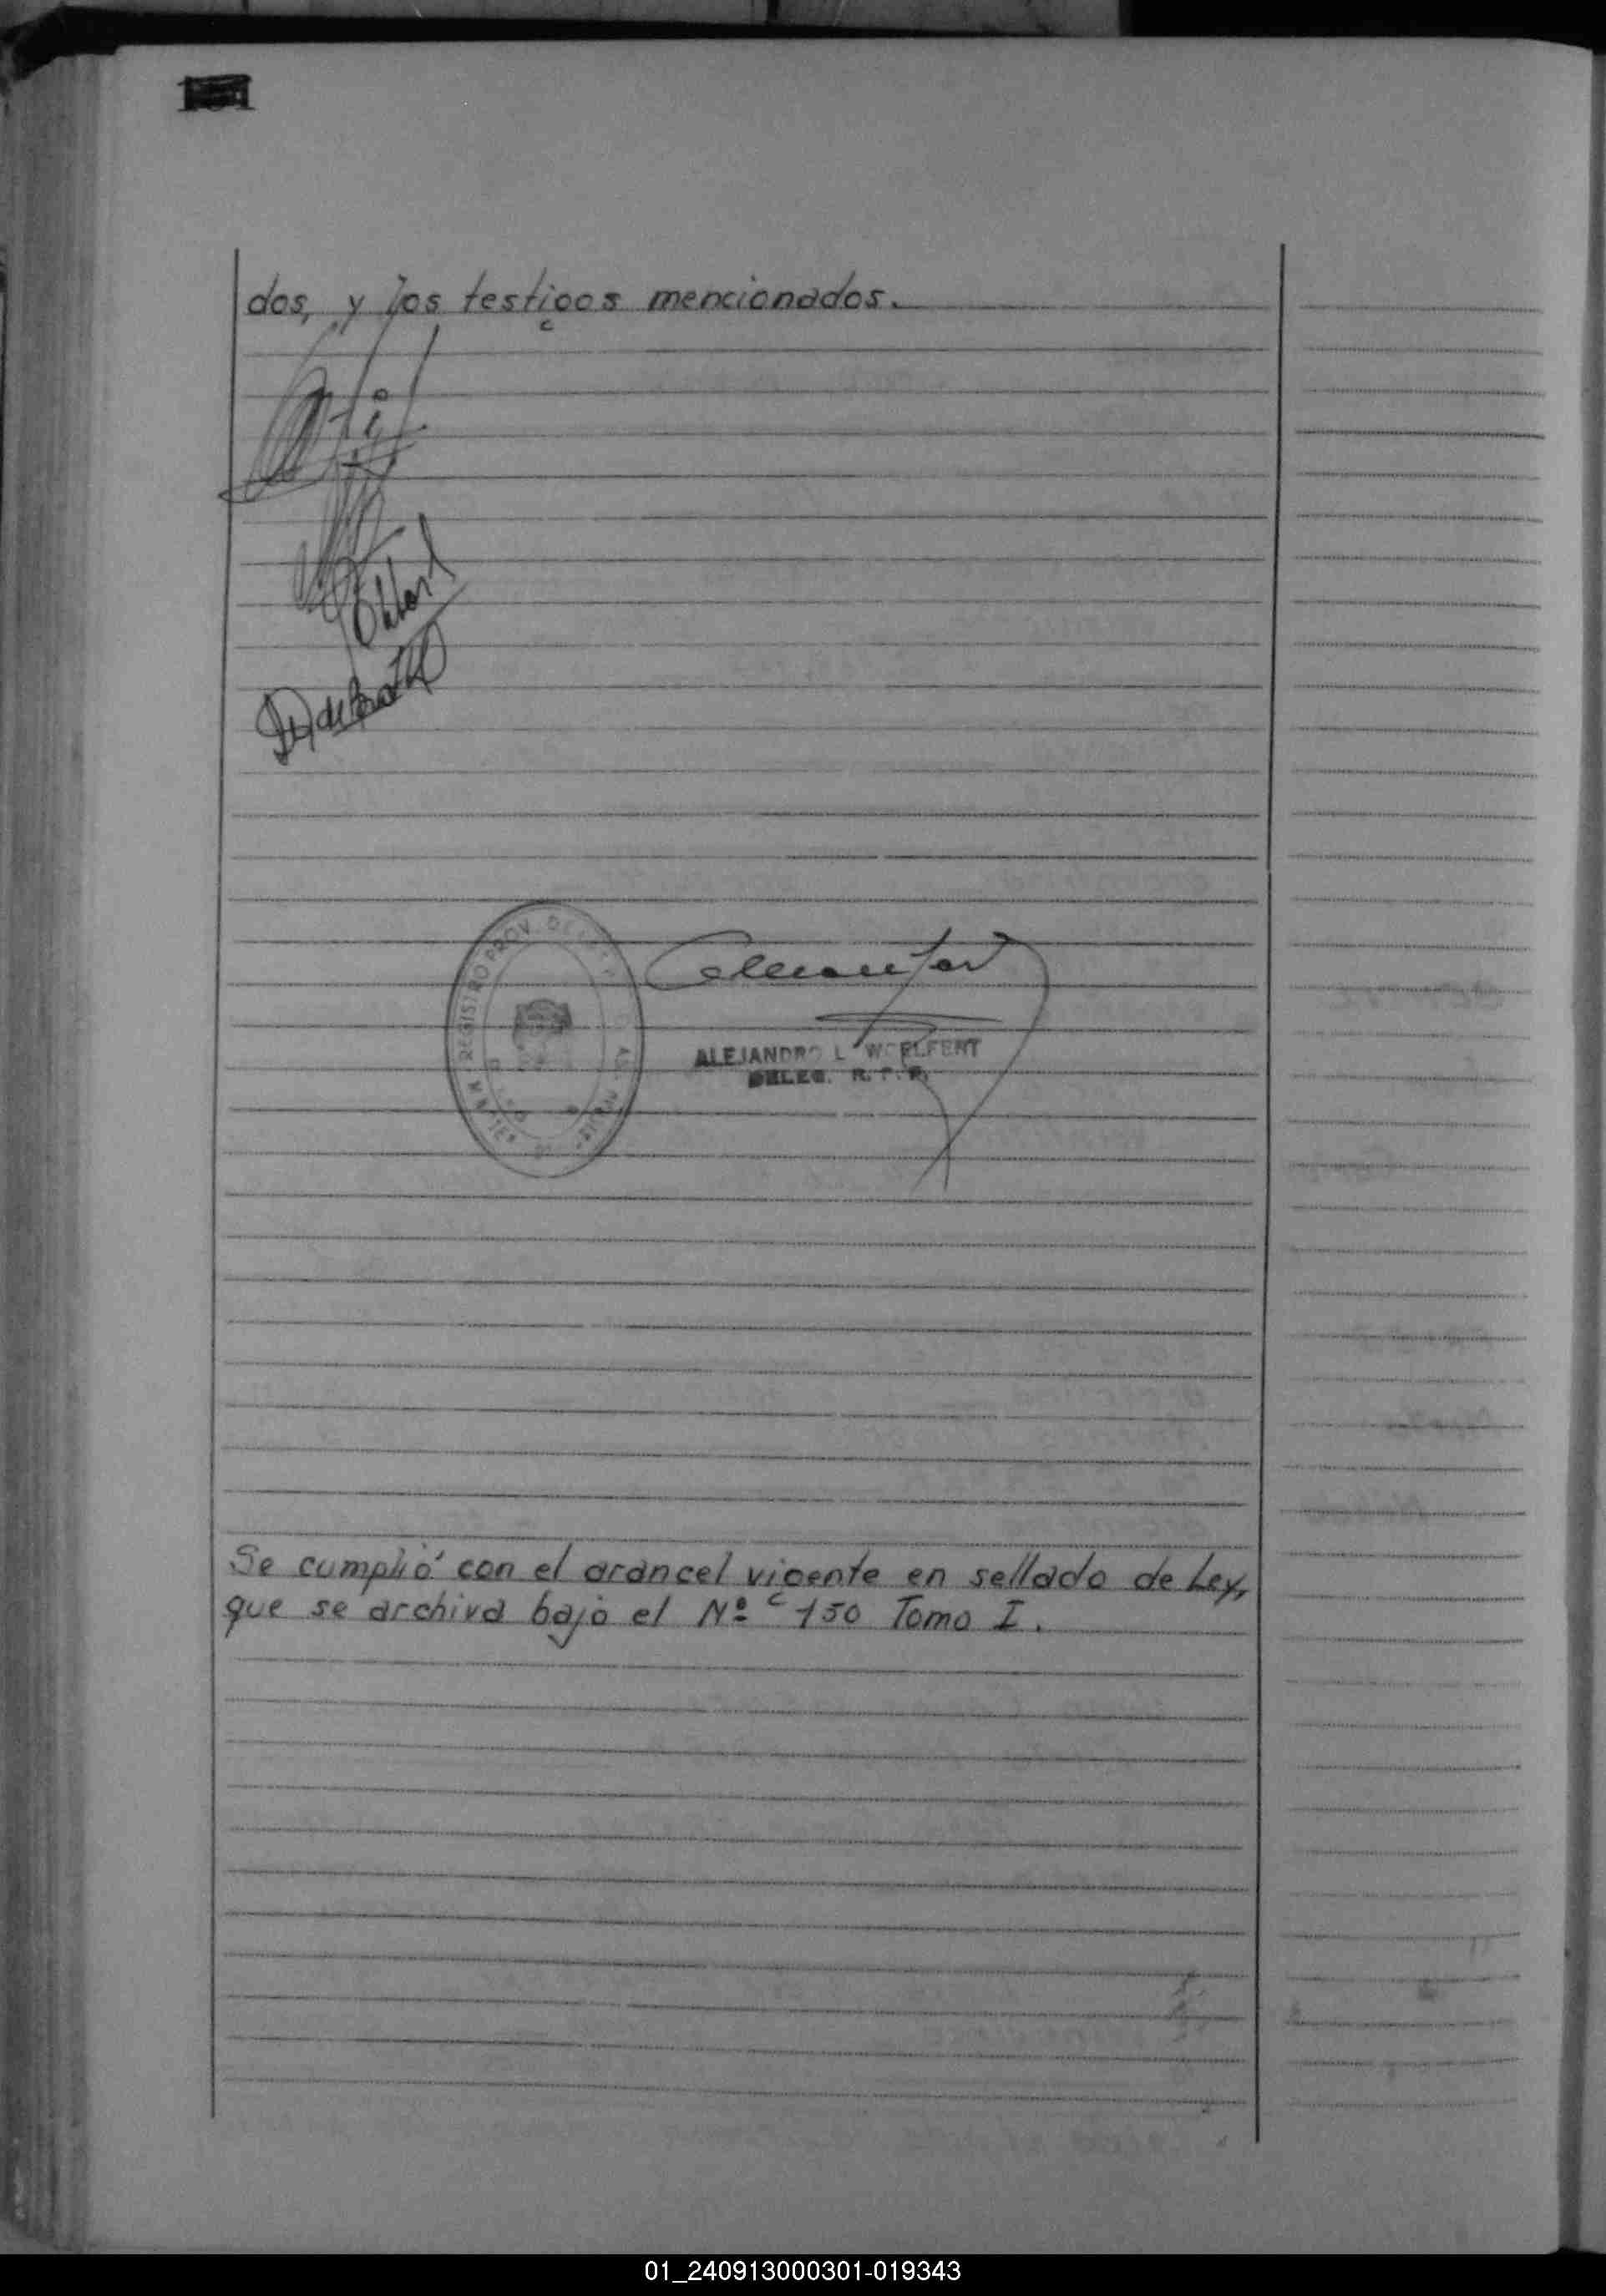 dos, y los testigos mencionados.
REGISTRO PROV. DE
ALEJANDRO L WOELFERT
DELEG. R. P. P.
Se cumplió con el arancel vigente en sellado de Ley,
que se archiva bajo el Nº 150 Tomo I.
01_240913000301-019343